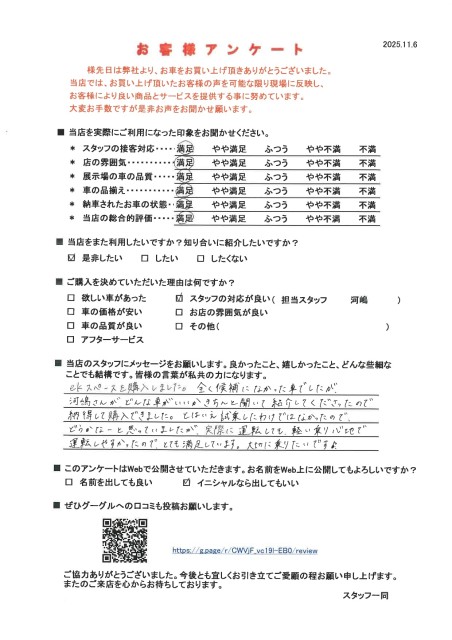 お客様アンケート
2025.11.6
様先日は弊社より、お車をお買い上げ頂きありがとうございました。
当店では、お買い上げ頂いたお客様の声を可能な限り現場に反映し、
お客様により良い商品とサービスを提供する事に努めています。
大変お手数ですが是非お声をお聞かせ願います。
■ 当店を実際にご利用になった印象をお聞かせください。
* スタッフの接客対応・・・・ 満足 やや満足 ふつう やや不満 不満
* 店の雰囲気・・・・・・・・・・ 満足 やや満足 ふつう やや不満 不満
* 展示場の車の品質・・・・ 満足 やや満足 ふつう やや不満 不満
* 車の品揃え・・・・・・・・・・ 満足 やや満足 ふつう やや不満 不満
* 納車されたお車の状態・・ 満足 やや満足 ふつう やや不満 不満
* 当店の総合的評価・・・・ 満足 やや満足 ふつう やや不満 不満
■ 当店をまた利用したいですか?知り合いに紹介したいですか?
☑ 是非したい □ したい □ したくない
■ ご購入を決めていただいた理由は何ですか?
□ 欲しい車があった ☑ スタッフの対応が良い( 担当スタッフ 河嶋 )
□ 車の価格が安い □ お店の雰囲気が良い
□ 車の品質が良い □ その他( )
□ アフターサービス
■ 当店のスタッフにメッセージをお願いします。良かったこと、嬉しかったこと、どんな些細な
ことでも結構です。皆様の言葉が私共の力になります。
ekスペースを購入しました。全く候補になかった車でしたが
河嶋さんがどんな車がいいかきちんと聞いて紹介してくださったので
納得して購入できました。とはいえ試乗したわけではなかったので、
どうかなーと思っていましたが、実際に運転しても、軽い乗り心地で
運転しやすかったので、とても満足しています。大切に乗りたいですよ
■ このアンケートはWebで公開させていただきます。お名前をWeb上に公開してもよろしいですか?
□ 名前を出しても良い ☑ イニシャルなら出してもいい
■ ぜひグーグルへの口コミも投稿お願いします。
https://g.page/r/CWVjF_vc19I-EB0/review
ご協力ありがとうございました。今後とも宜しくお引き立てご愛顧の程お願い申し上げます。
またのご来店を心からお待ちしております。
スタッフ一同